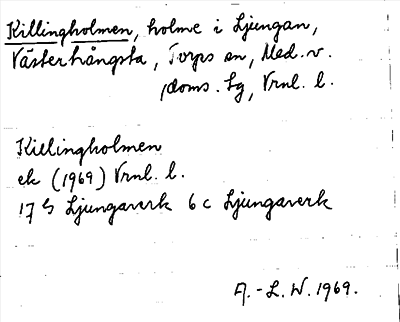 Killingholmen, holme i Ljungan,
Västerhångsta, Torps sn, Med. v.
doms. lg, Vrnl. l.
Killingholmen
ek (1969) Vrnl. l.
17 G Ljungaverk 6 c Ljungaverk
A.-L. W. 1969.